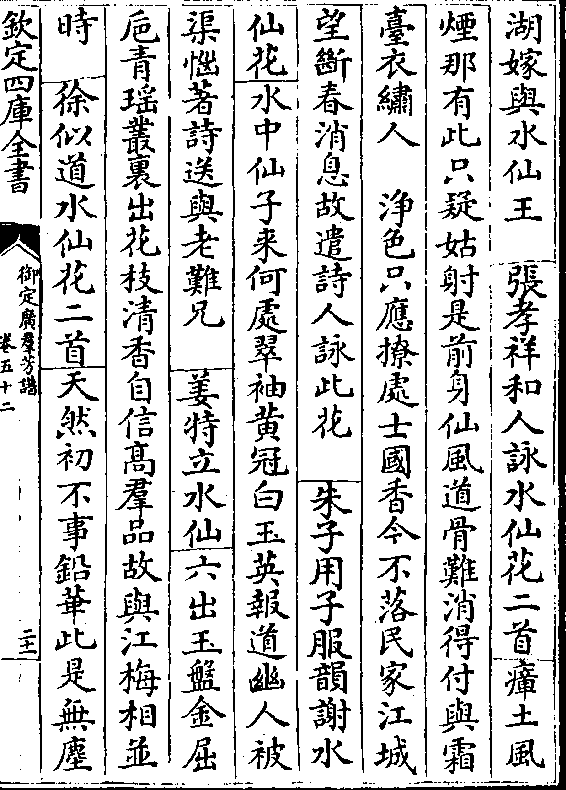 湖嫁與水仙王　張孝祥和人詠水仙花二首瘴土風
煙那有此只疑姑射是前身仙風道骨難消得付與霜
臺衣繡人　浄色只應撩處士國香今不落民家江城
望斷春消息故遣詩人詠此花　朱子用子服韻謝水
仙花水中仙子来何處翠袖黄冠白玉英報道幽人被
渠惱著詩送與老難兄　姜特立水仙六出玉盤金屈
巵青瑶叢裏出花枝清香自信髙羣品故與江梅相並
時　徐似道水仙花二首天然初不事鉛華此是無塵
欽定四庫全書
御定廣羣芳譜
卷五十二
二十二